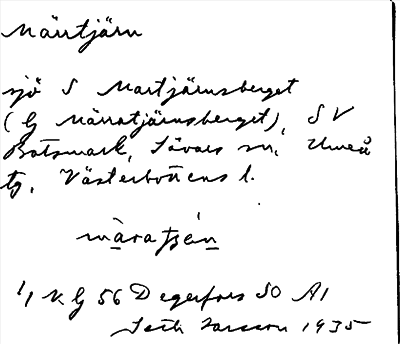 Märrtjärn
sjö S Martjärnsberget
(G Märratjärnsberget), SV
Botsmark, Sävars sn, Umeå
tg, Västerbottens l.
märatjén
1/1 K. G 56 Degerfors SO A1
Seth Larsson 1935